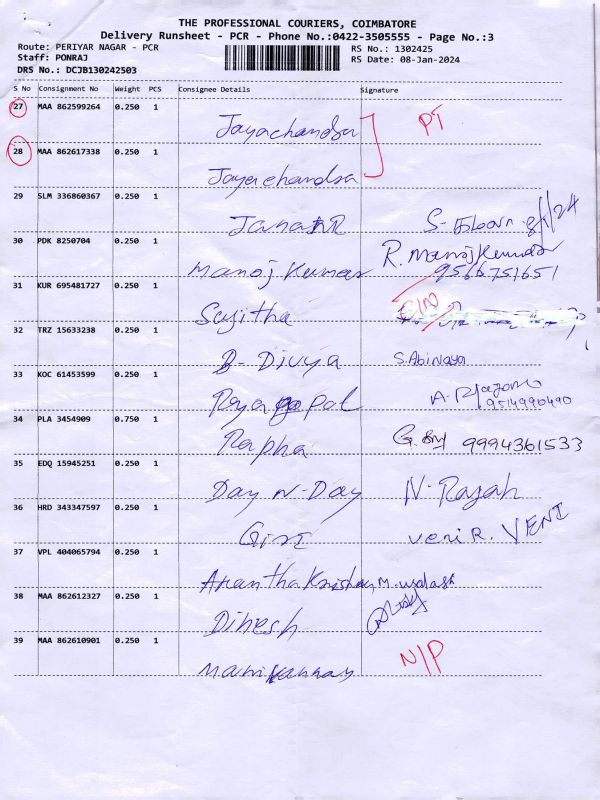 THE PROFESSIONAL COURIERS, COIMBATORE
Delivery Runsheet - PCR - Phone No.:0422-3505555 - Page No.:3
Route: PERIYAR NAGAR - PCR RS No.: 1302425
Staff: PONRAJ RS Date: 08-Jan-2024
DRS No.: DCJB130242503
S No Consignment No Weight PCS Consignee Details Signature
27 MAA 862599264 0.250 1
Jayachandra PT
28 MAA 862617338 0.250 1
Jayachandra
29 SLM 336860367 0.250 1
8/1/24
30 PDK 8250704 0.250 1
Manoj Kumar R. Manoj Kumar
9566751651
31 KUR 695481727 0.250 1
Sujitha
32 TRZ 15633238 0.250 1
B- Divya S. Abinaya
33 KOC 61453599 0.250 1
Rajagopal A.
9514990490
34 PLA 3454909 0.750 1
Rapha G. 9994361533
35 EDQ 15945251 0.250 1
Day N-Day N-Rajah
36 HRD 343347597 0.250 1
Giri Veni R. VENI
37 VPL 404065794 0.250 1
Anantha Krishnan M.
38 MAA 862612327 0.250 1
Dinesh
39 MAA 862610901 0.250 1
Manikannan N/P